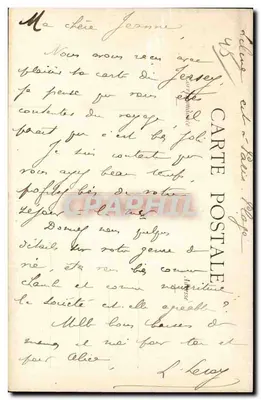 Ma chère Jeanne
Nous avons reçu avec
plaisir ta carte de Jersey
je pense que vous êtes
contentes du voyage, il
paraît que c'est bes joli
Je suis content que
vous ayez beau temps
profitez bien de votre
séjour
Donnez nous quelques
détails sur votre genre de
vie, êtes vous bes comme
et comme nourriture
la société est elle agréable ?
Mille bons baisers de
et moi pour toi et
pour Alice
L. Leroy
CARTE POSTALE
CPAPHIL